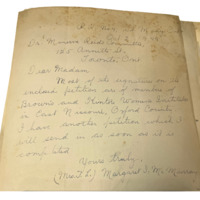 Dr.
168 Annette St.
Toronto, Ont
Dear Madam
Most of the signatures on the
enclosed petition are of members of
Browns and Hunter Womens Institutes
in East Nissouri, Oxford County.
I have another petition which I
will send in as soon as it is
completed
Yours Truly,
(Mrs. T. L.) Margaret D. McMurray